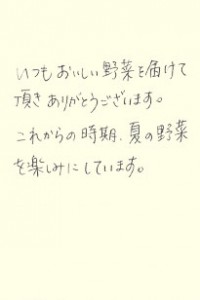 いつもおいしい野菜を届けて
頂きありがとうございます。
これからの時期、夏の野菜
を楽しみにしています。